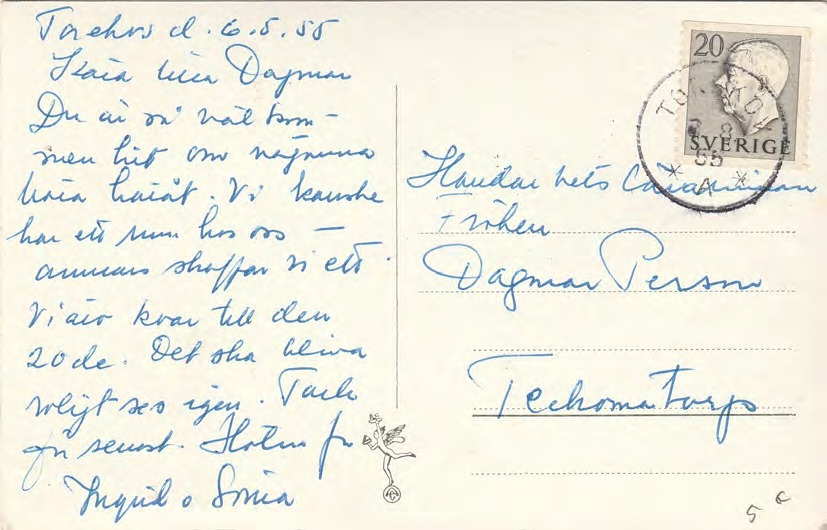 Torekov d. 6.8.55
Kära lilla Dagmar
Du är så väl kom-
men hit om någon
höra häråt. Vi kanske
har ett rum hos oss —
annars skaffar vi ett
Vi äro kvar till den
20de. Det ska bliva
roligt ses igen. Tack
för senast. Hälsn fr
Ingrid o Sonia
20
SVERIGE
55
* A *
Fröken
Dagmar Person
Teckomatorp
5